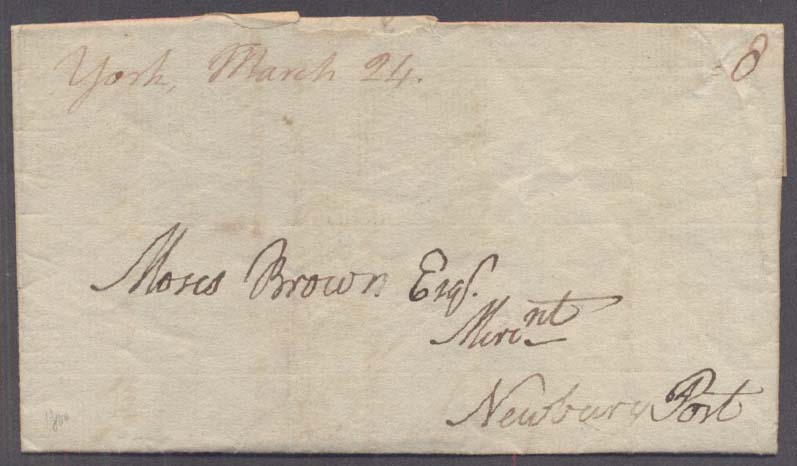 York, March 24.
8
Moses Brown Esqr.
Mercnt
Newbury Port